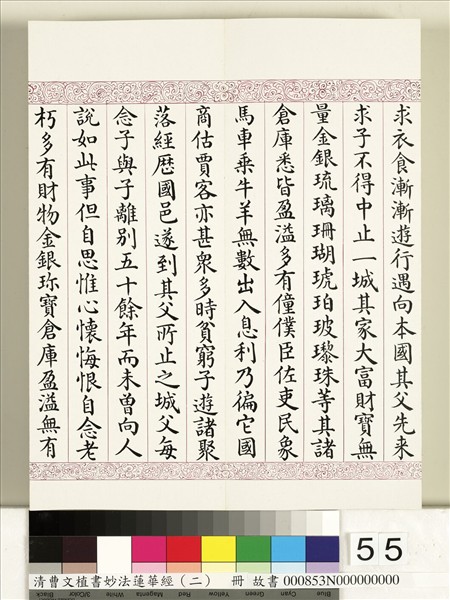 求衣食漸漸遊行遇向本國其父先來
求子不得中止一城其家大富財寶無
量金銀琉璃珊瑚琥珀玻瓈珠等其諸
倉庫悉皆盈溢多有僮僕臣佐吏民象
馬車乘牛羊無數出入息利乃徧它國
商估賈客亦甚眾多時貧窮子遊諸聚
落經歷國邑遂到其父所止之城父每
念子與子離別五十餘年而未曾向人
說如此事但自思惟心懷悔恨自念老
朽多有財物金銀珎寶倉庫盈溢無有
55
清曹文植書妙法蓮華經（二） 冊 故書 000853N000000000
Black 3/Color White Magenta Red Yellow Green Cyan Blue